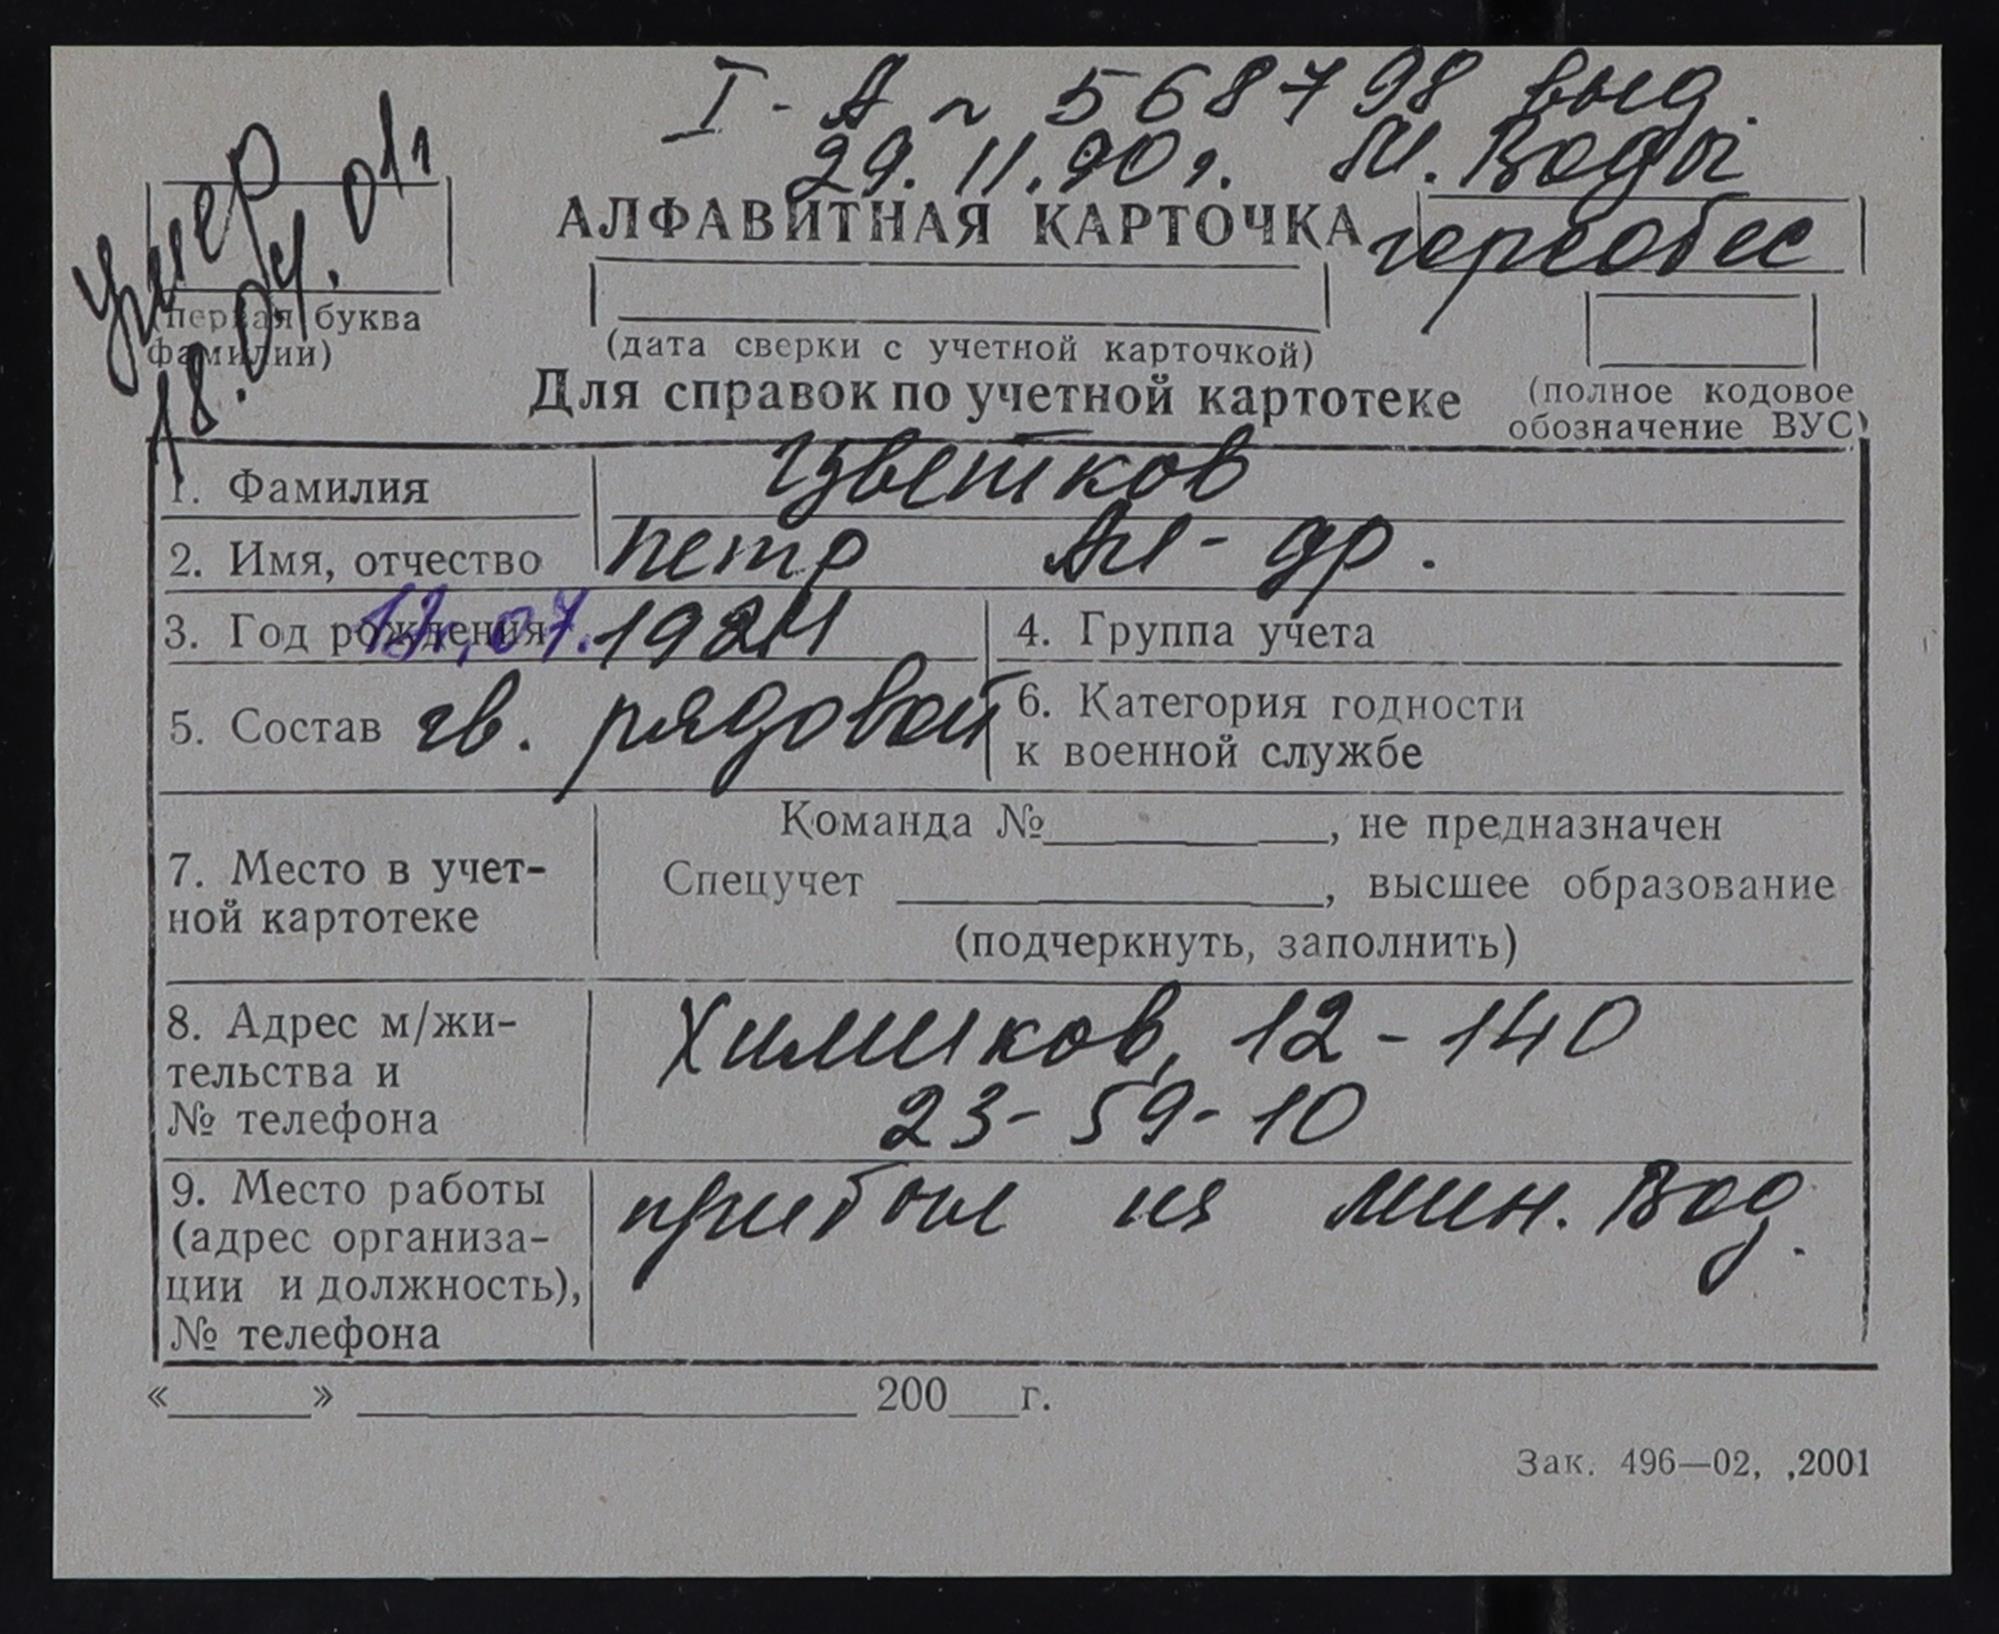 I-А № 568798 выд.
29.11.90г. М. Воды
горсобес
умер
18.04.01г
АЛФАВИТНАЯ КАРТОЧКА
(первая буква
фамилии)
(дата сверки с учетной карточкой)
(полное кодовое
обозначение ВУС)
Для справок по учетной картотеке
1. Фамилия Цветков
2. Имя, отчество Петр Ал-др.
3. Год рождения .07. 1924
4. Группа учета
5. Состав гв. рядовой
6. Категория годности
к военной службе
7. Место в учет-
ной картотеке
Команда №________, не предназначен
Спецучет ________, высшее образование
(подчеркнуть, заполнить)
8. Адрес м/жи-
тельства и
№ телефона
Химиков, 12-140
23-59-10
9. Место работы
(адрес организа-
ции и должность),
№ телефона
прибыл из Мин. Вод.
«____» ________ 200__г.
Зак. 496—02, ,2001